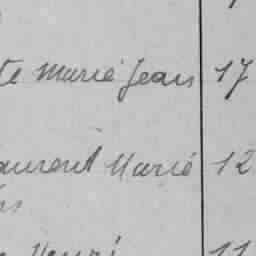 te Marie Jean 17
aurent Marie 12
Henri 11